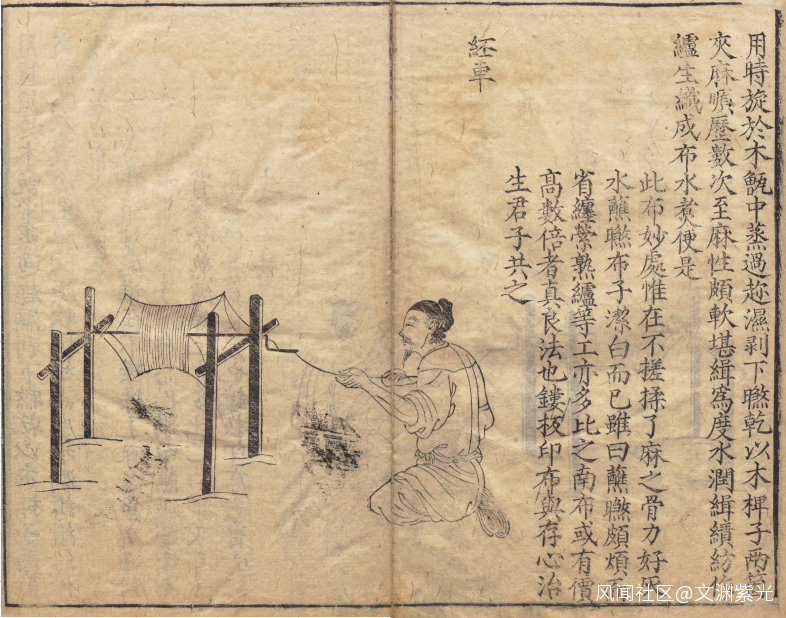 用時旋於木甑中蒸過趂濕剥下曬乾以木椑子兩
夾麻順歷數次至麻性頗軟堪緝爲度水潤緝績紡
纑生織成布水煮便是
此布妙處惟在不搓揉了麻之骨力好
水蘸曬布子潔白而已雖曰蘸曬頗煩
省纏縈熟纑等工亦多比之南布或有價
高數倍者真良法也鏤板印布與存心治
生君子共之
車
风闻社区@文渊紫光